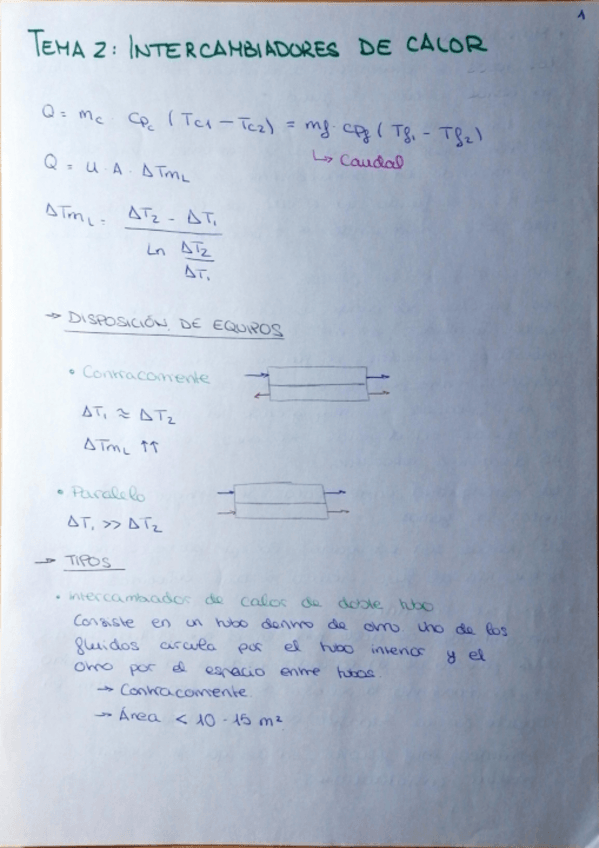 1
TEMA 2: INTERCAMBIADORES DE CALOR
Q = mc · cpc (Tc1 - Tc2) = mf · cpf (Tf1 - Tf2)
↳ Caudal
Q = U · A · ΔTmL
ΔTmL = ΔT2 - ΔT1
Ln ΔT2
ΔT1
→ DISPOSICIÓN DE EQUIPOS
• Contracorriente
ΔT1 ≈ ΔT2
ΔTmL ↑↑
• Paralelo
ΔT1 >> ΔT2
→ TIPOS
• intercambiador de calor de doble tubo
Consiste en un tubo dentro de otro uno de los
fluidos circula por el tubo interior y el
otro por el espacio entre tubos.
→ Contracorriente
→ Área < 10-15 m²